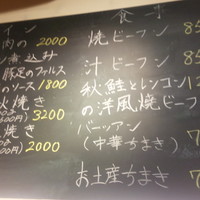 イン
肉の 2000
煮込み
豚足のファルス
のソース 1800
焼き
3200
焼き
2000
食事
焼ビーフン 85
汁ビーフン 85
秋鮭とレンコン
の洋風焼ビーフ
バーツアン
(中華ちまき) 7
お土産ちまき 7